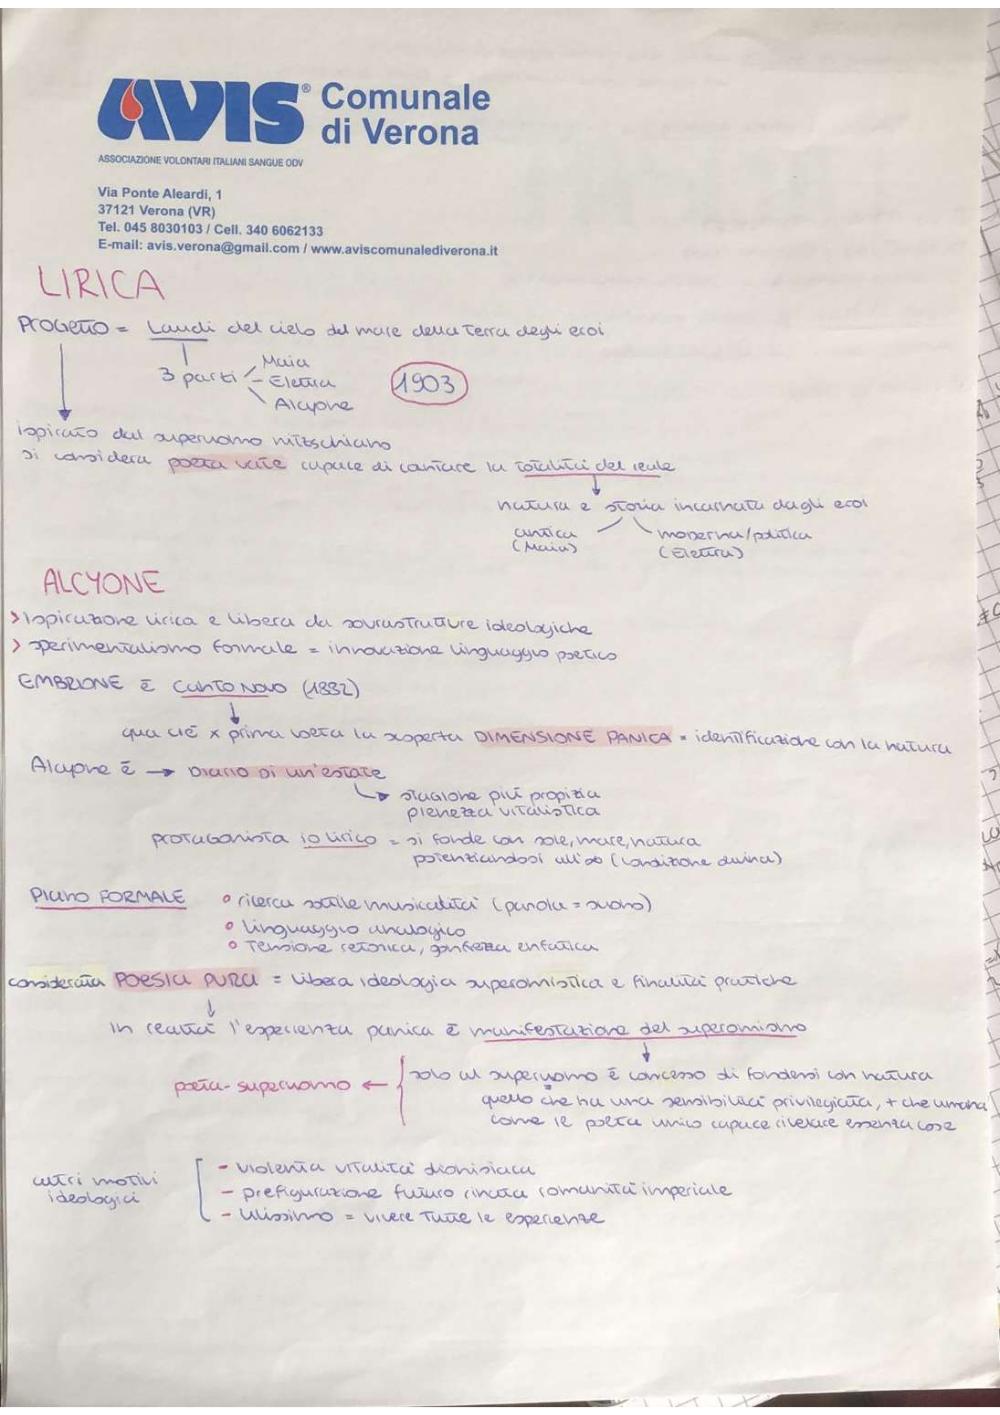 AVIS® Comunale
di Verona
ASSOCIAZIONE VOLONTARI ITALIANI SANGUE ODV
Via Ponte Aleardi, 1
37121 Verona (VR)
Tel. 045 8030103 / Cell. 340 6062133
E-mail: avis.verona@gmail.com / www.aviscomunalediverona.it
LIRICA
PROGETTO = Laudi del cielo del mare della terra degli eroi
3 parti
Maia
Elettra
Alcyone
1903
ispirato dal superuomo nitzschiano
si considera poeta vate capace di cantare la totalità del reale
natura e storia incarnata dagli eroi
antica
(Maia)
moderna/politica
(Elettra)
ALCYONE
> Ispirazione lirica e libera da sovrastrutture ideologiche
> sperimentalismo formale = innovazione linguaggio poetico
EMBRIONE È CANTO NOVO (1882)
qua c'è x prima volta la scoperta DIMENSIONE PANICA = identificazione con la natura
Alcyone è → DIARIO DI un'estate
stagione più propizia
pienezza vitalistica
protagonista io lirico = si fonde con sole, mare, natura
potenziandosi all'∞ (condizione divina)
PIANO FORMALE
• ricerca sottile musicalità (parola = suono)
• linguaggio analogico
• Tensione retorica, gonfiezza enfatica
considerata POESIA PURA = libera ideologia superomistica e finalità pratiche
In realtà l'esperienza panica è manifestazione del superomismo
poeta-superuomo ←
solo al superuomo è concesso di fondersi con natura
quello che ha una sensibilità privilegiata, + che umana
come il poeta unico capace rivelare essenza cose
altri motivi
ideologici
- violenta vitalità dionisiaca
- prefigurazione futuro rinata romanità imperiale
- Ulissimo = vivere tutte le esperienze